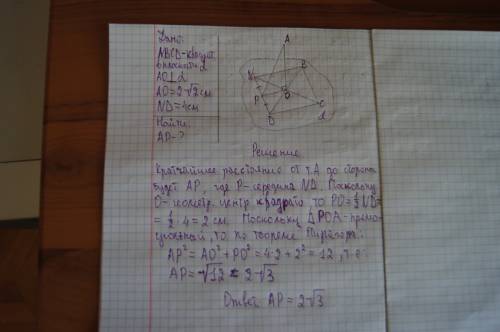 Дано:
ABCD-квадрат
в плоскости α
AO⊥α
AO=2√2 см
ND=4см
Найти:
AP-?
A
B
N
P
O
C
D
α
Решение
Кратчайшее расстояние от т.А до стороны
будет AP, где P-середина ND. Поскольку
O-геометр. центр квадрата, то PO=½ND=
=½·4=2см. Поскольку △POA-прямо-
угольный, то по теореме Пифагора:
AP²=AO²+PO²=4·2+2²=12, т.е.
AP=√12=2√3
Ответ AP=2√3